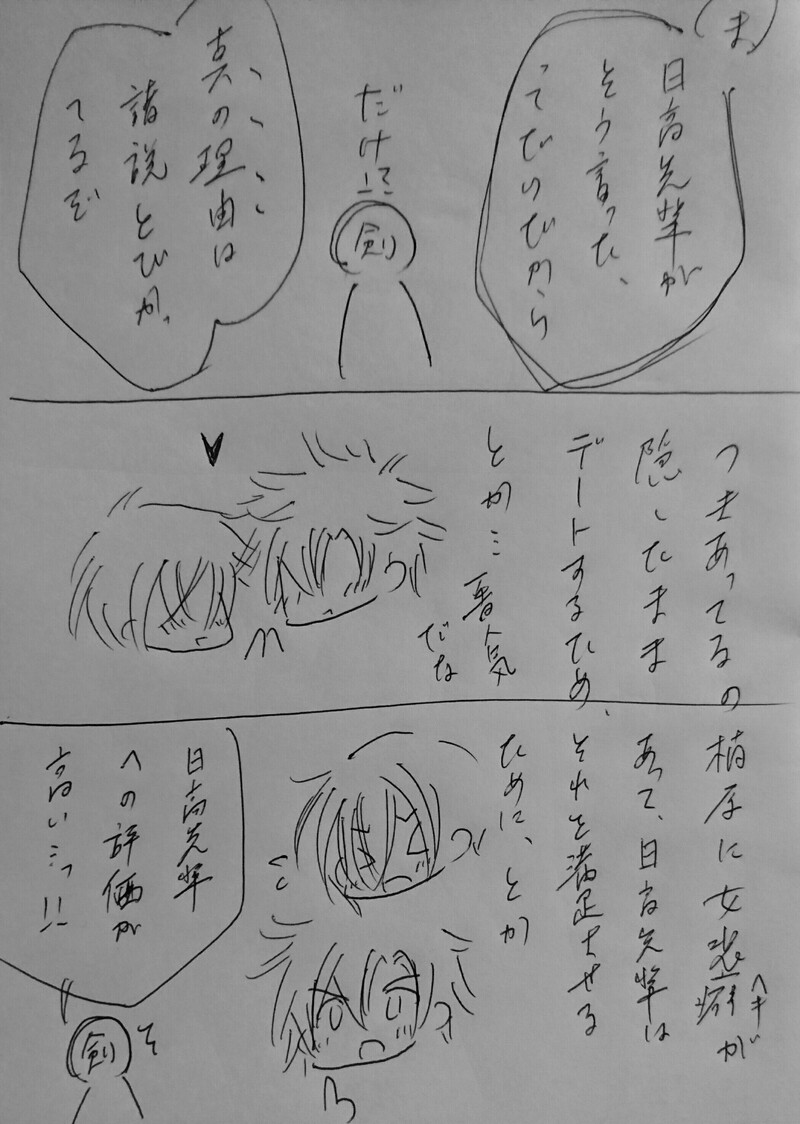 ま
日高先輩が
そう言った、
ってだけだから
だけ!?
剣
真の理由は
諸説とびか
てるぞ
つきあってるの
隠したまま
デートするため、
とか…
だな
に女装癖が
ヘキ
あって、日高先輩は
それを満足させる
ために、とか
日高先輩
への評価が
高いっ!!
剣